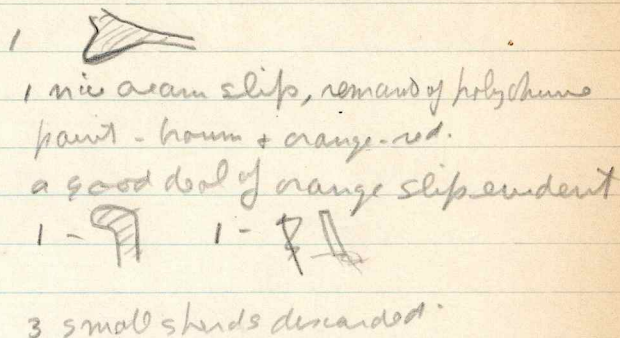 1
1 nice cream slip, remand of polychrome
paint - brown + orange-red.
a good deal of orange slip evident
1 - 1 -
3 small sherds discarded.